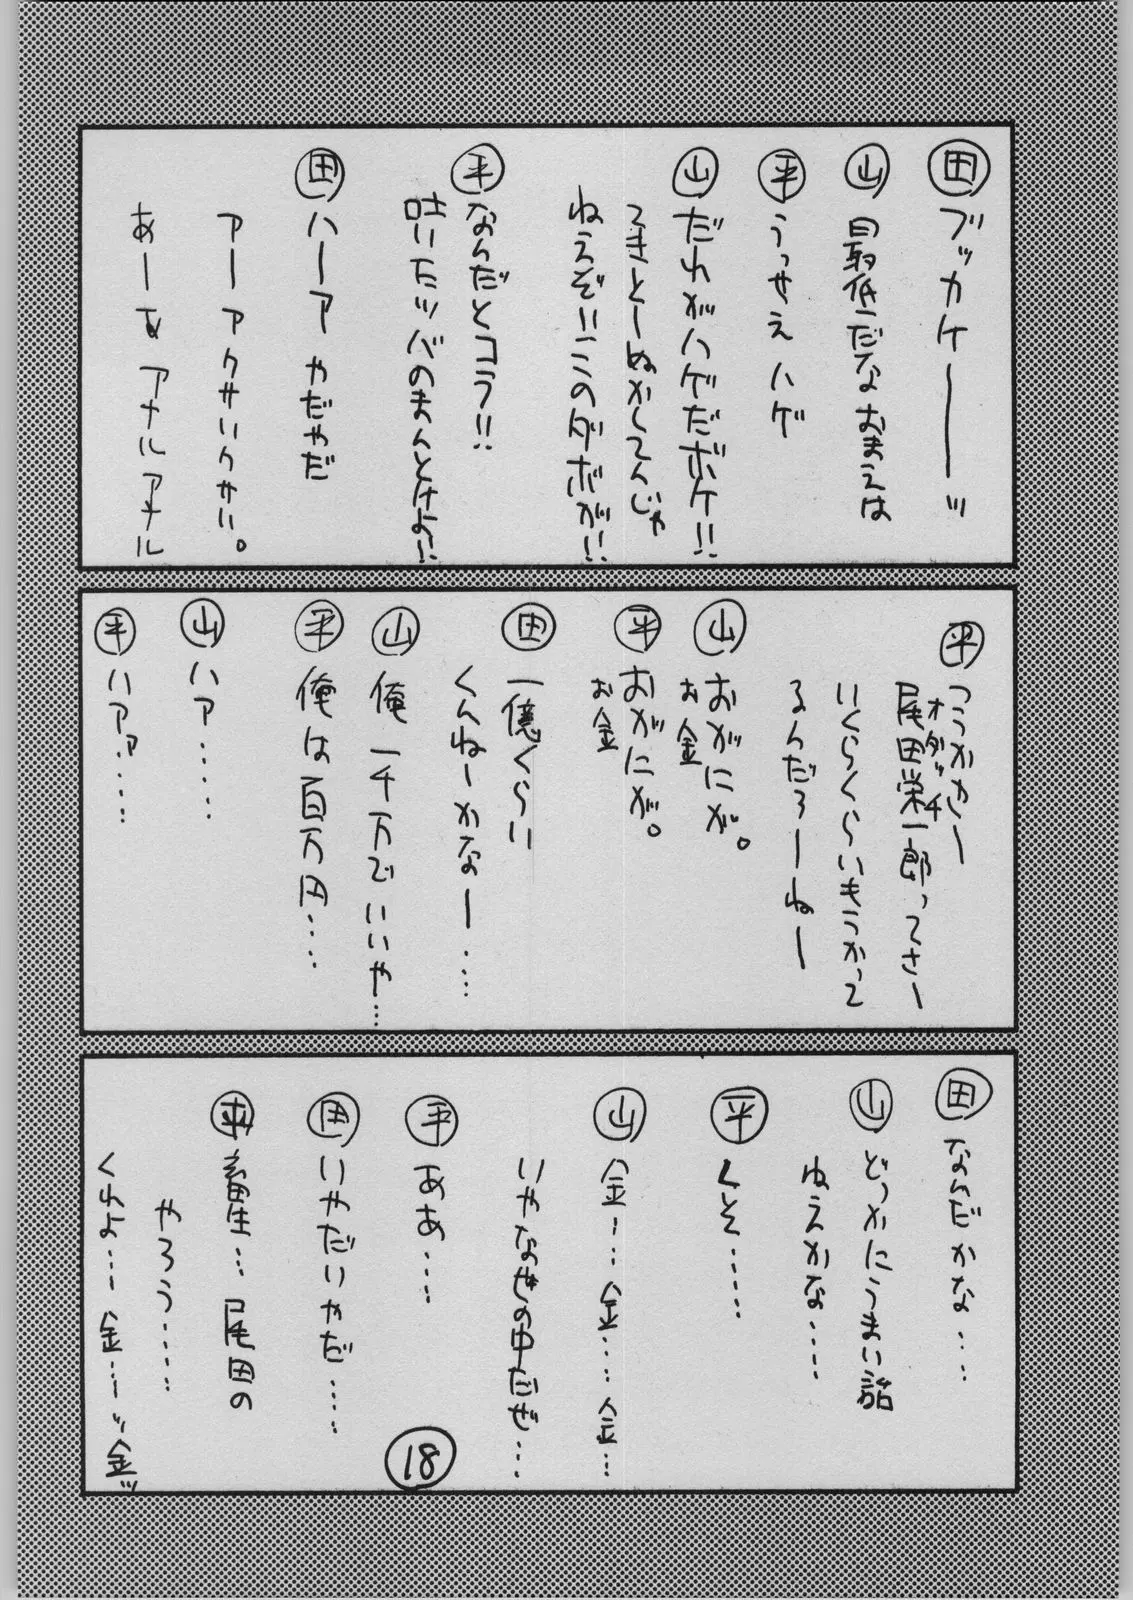 田 ブッカケーーーッ
山 最低だなおまえは
平 うっせえハゲ
山 だれがハゲだボケ!!
てきとーぬかしてんじゃ
ねえぞ!!このダボが!!
平 なんだとコラ!!
吐いたツバのまんとけよ!!
田 ハーア やだやだ
アー アクサいクサい。
あーあ アナルアナル
平 つうかさー
尾田栄一郎ってさー
オダッチ
いくらくらいもうかって
るんだろーねー
山 おがにが。
お金
平 おがにが。
お金
田 一億くらい
くんねーかなー‥‥
山 俺一千万でいいや…
平 俺は百万円‥‥
山 ハァ‥‥
平 ハァァ‥‥
田 なんだかな‥‥
山 どっかにうまい話
ねえかな‥‥
平 くそ‥‥‥
山 金‥‥金‥‥金…
いやなせの中だぜ…
平 ああ‥‥
田 いやだいやだ‥‥
平 畜生… 尾田の
やろう‥‥‥
くそ‥‥金…ーッ金ッ
18